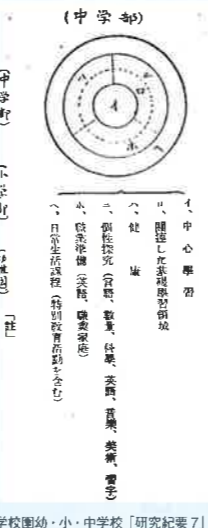 (中学部)
イ
ロ
ハ
ニ
ホ
ヘ
イ、中心學習
ロ、関連した基礎學習領域
ハ、健康
ニ、個性探究(言語、數量、科學、英語、音樂、美術、習字)
ホ、職業準備(英語、職業家庭)
ヘ、日常生活課程(特別教育活動を含む)
(中学部)
(小学部)
(幼稚園)
「註」
学校園幼・小・中学校「研究紀要7」